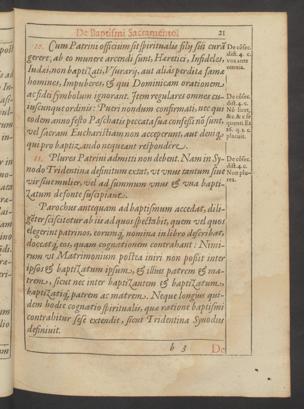 De Baptismi Sacramento. 21
10. Cum Patrini officium sit spiritualis filij sui curã
gerere, ab eo munere arcendi sunt, Hæretici, Infideles,
Iudæi, non baptizati, Vsurarij, aut aliàs perditæ famæ
homines, Impuberes, & qui Dominicam orationem,
ac fidei symbolum ignorant. Item regulares omnes cu-
iuscunque ordinis: Pueri nondum confirmati, nec qui
eodem anno festo Paschatis peccata sua confessi nõ sunt,
vel sacram Eucharistiam non acceperunt, aut deniq;
qui pro baptizando nequeant respondere.
11. Plures Patrini admitti non debent. Nam in Sy-
nodo Tridentina definitum extat, vt vnus tantum siue
vir siue mulier, vel ad summum vnus & vna bapti-
zatum de fonte suscipiant.
Parochus antequam ad baptismum accedat, dili-
gẽter sciscitetur ab iis ad quos spectabit, quem vel quos
elegerint patrinos, eorumq; nomina in libro describat,
doceatq; eos, quam cognationem contrahant: Nimi-
rum vt Matrimonium postea iniri non possit inter
ipsos & baptizatum ipsum, & illius patrem & ma-
trem, sicut nec inter baptizantem & baptizatum,
baptizatiq; patrem ac matrem. Neque longius qui-
dem hodie cognatio spiritualis, quæ ratione baptismi
contrahitur sese extendit, sicut Tridentina Synodus
definiuit.
b 3 De
De cõsec.
dist. 4. c.
vos ante
omnia.
De cõsec.
dist. 4. c.
De cõsec.
dist. 4. c.
Non plu-
res.